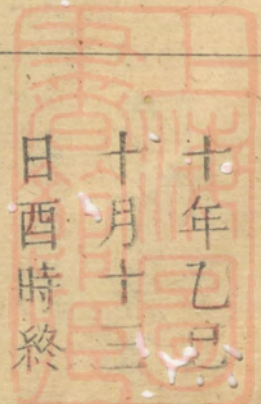 十年乙巳
十月十三
日酉時終